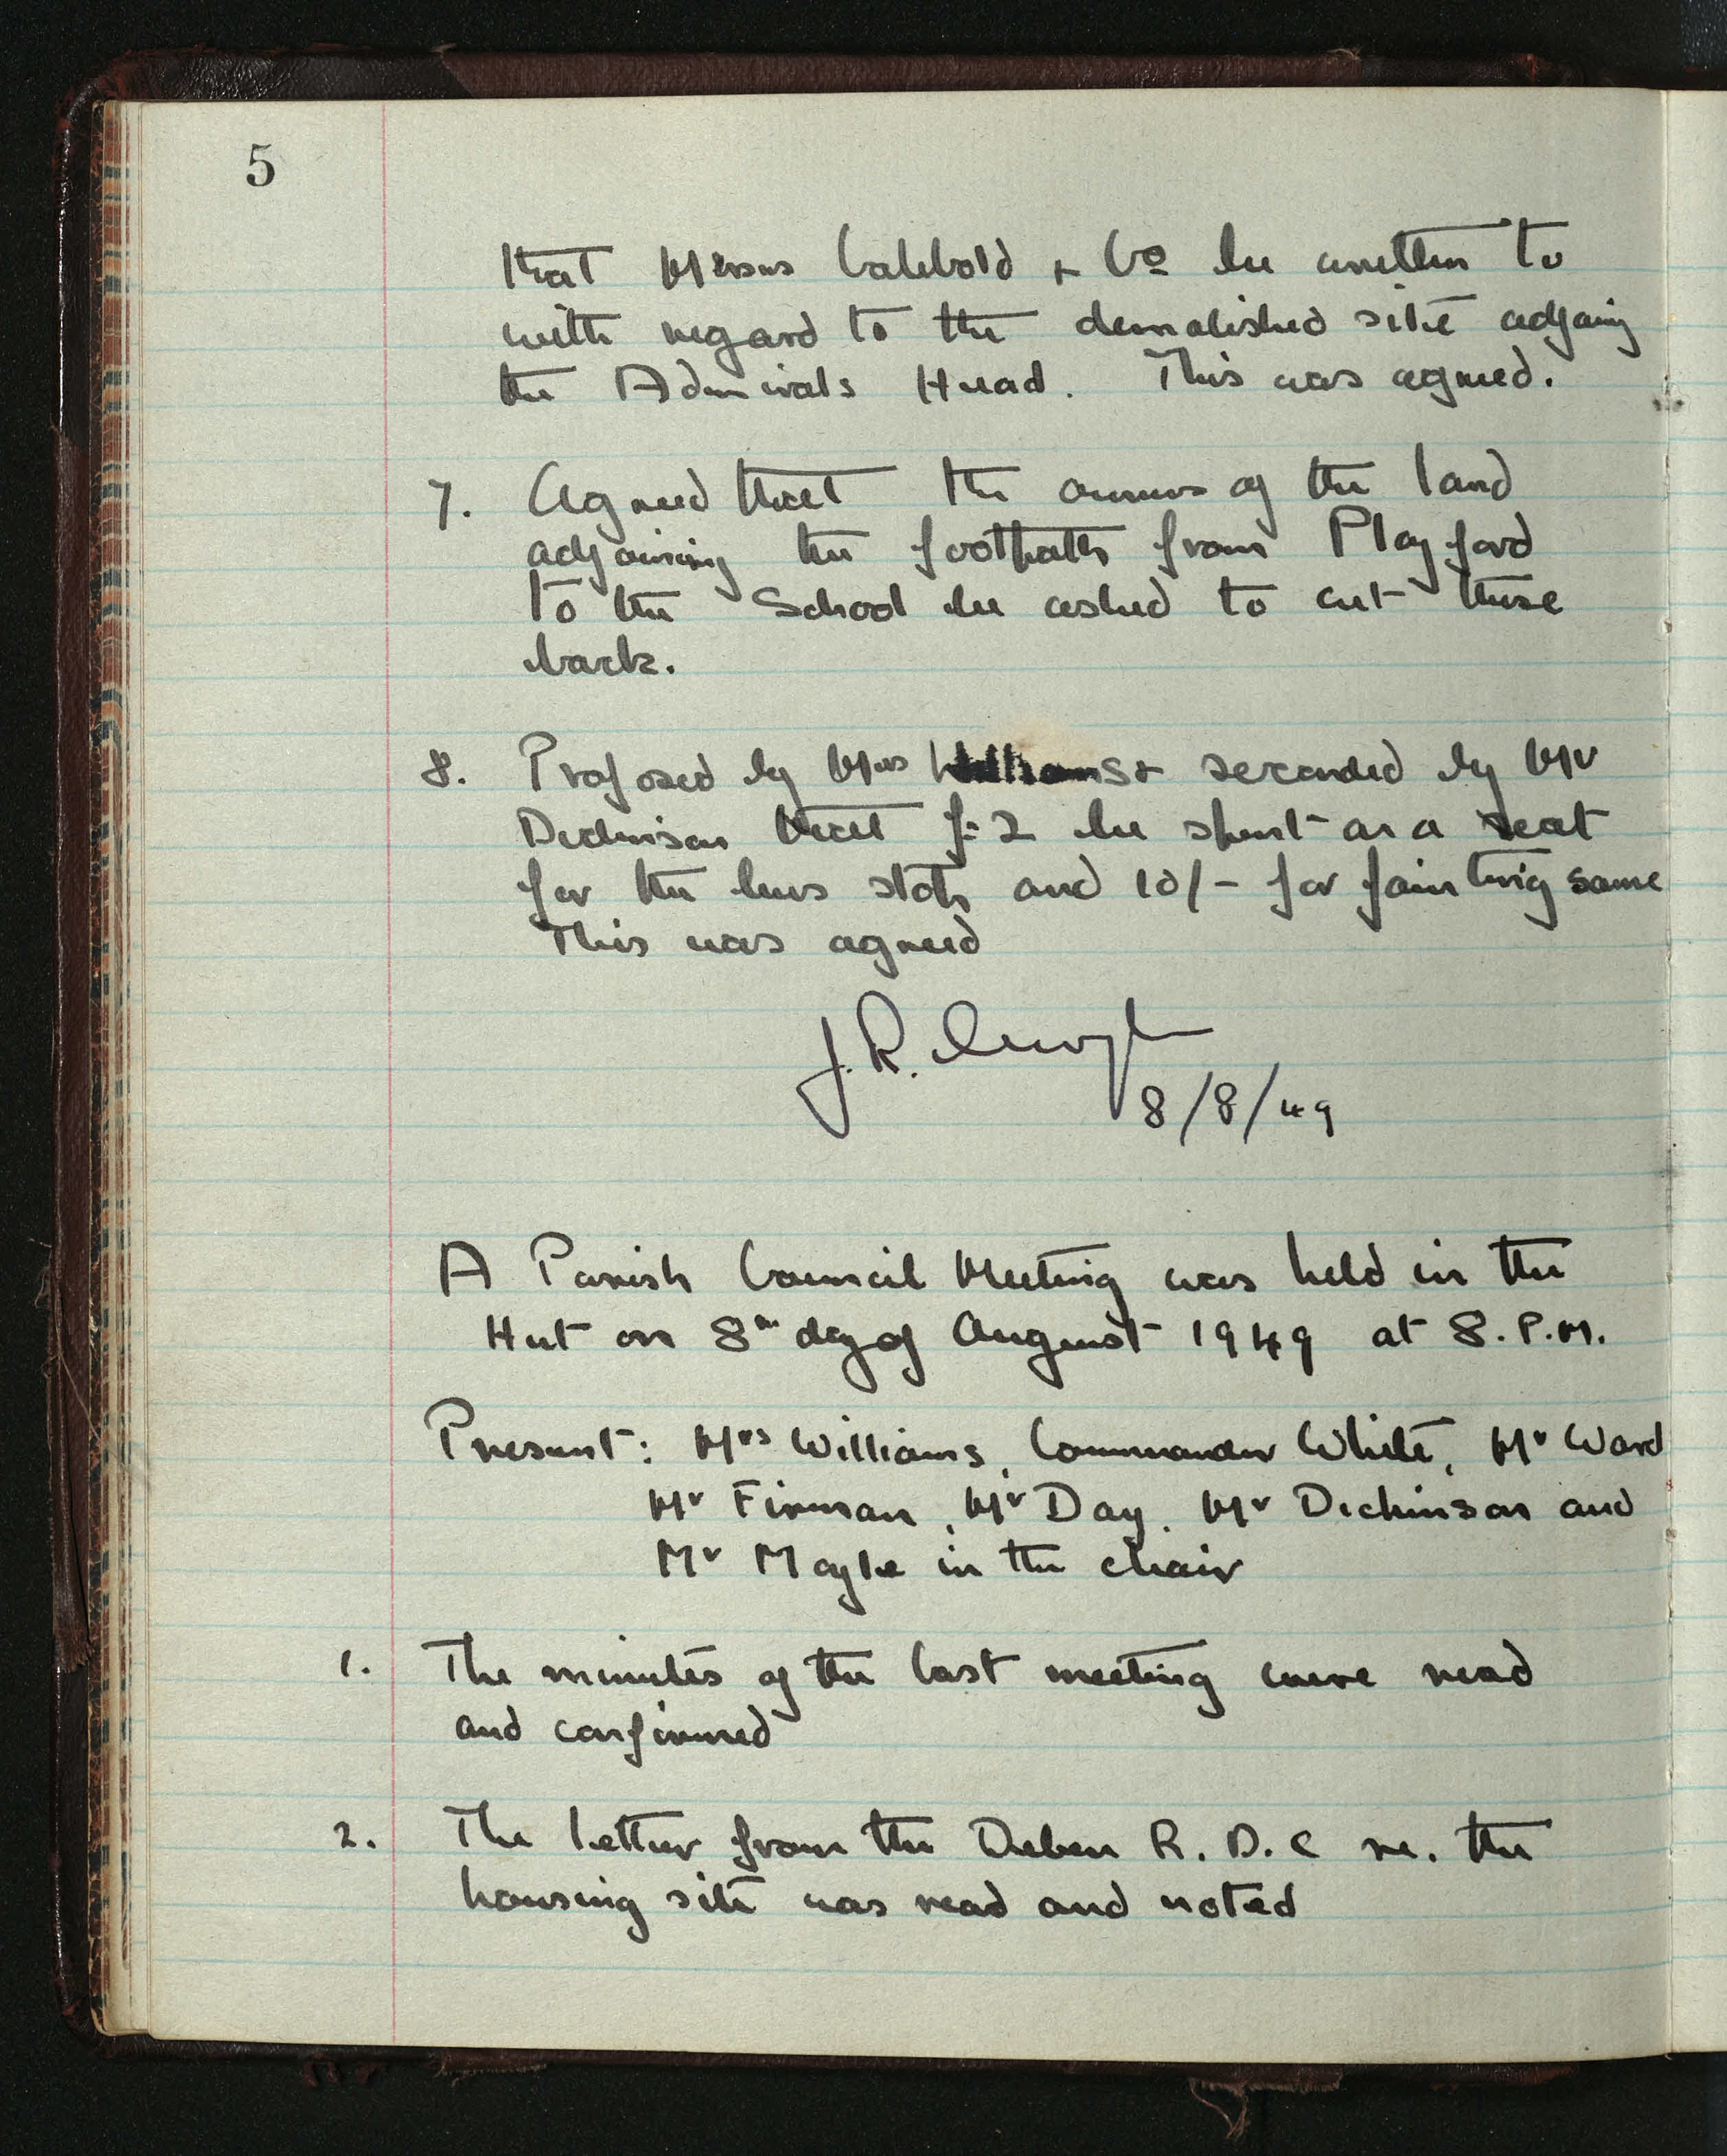 5
that Messrs Cobbold & Co be written to
with regard to the demolished site adjoing
the Admirals Head. This was agreed.
7. Agreed that the owners of the land
adjoining the footpath from Playford
to the School be asked to cut these
back.
8. Proposed by Mrs Williams & seconded by Mr
Dickinson that £2 be spent on a seat
for the bus stop and 10/- for painting same
This was agreed
J. R.
8/8/49
A Parish Council Meeting was held in the
Hut on 8th day of August 1949 at 8. P.M.
Present: Mrs Williams, Commander White, Mr Ward
Mr Firman, Mr Day, Mr Dickinson and
Mr in the chair
1. The minutes of the last meeting were read
and confirmed
2. The letter from the Deben R. D. C re. the
housing site was read and noted